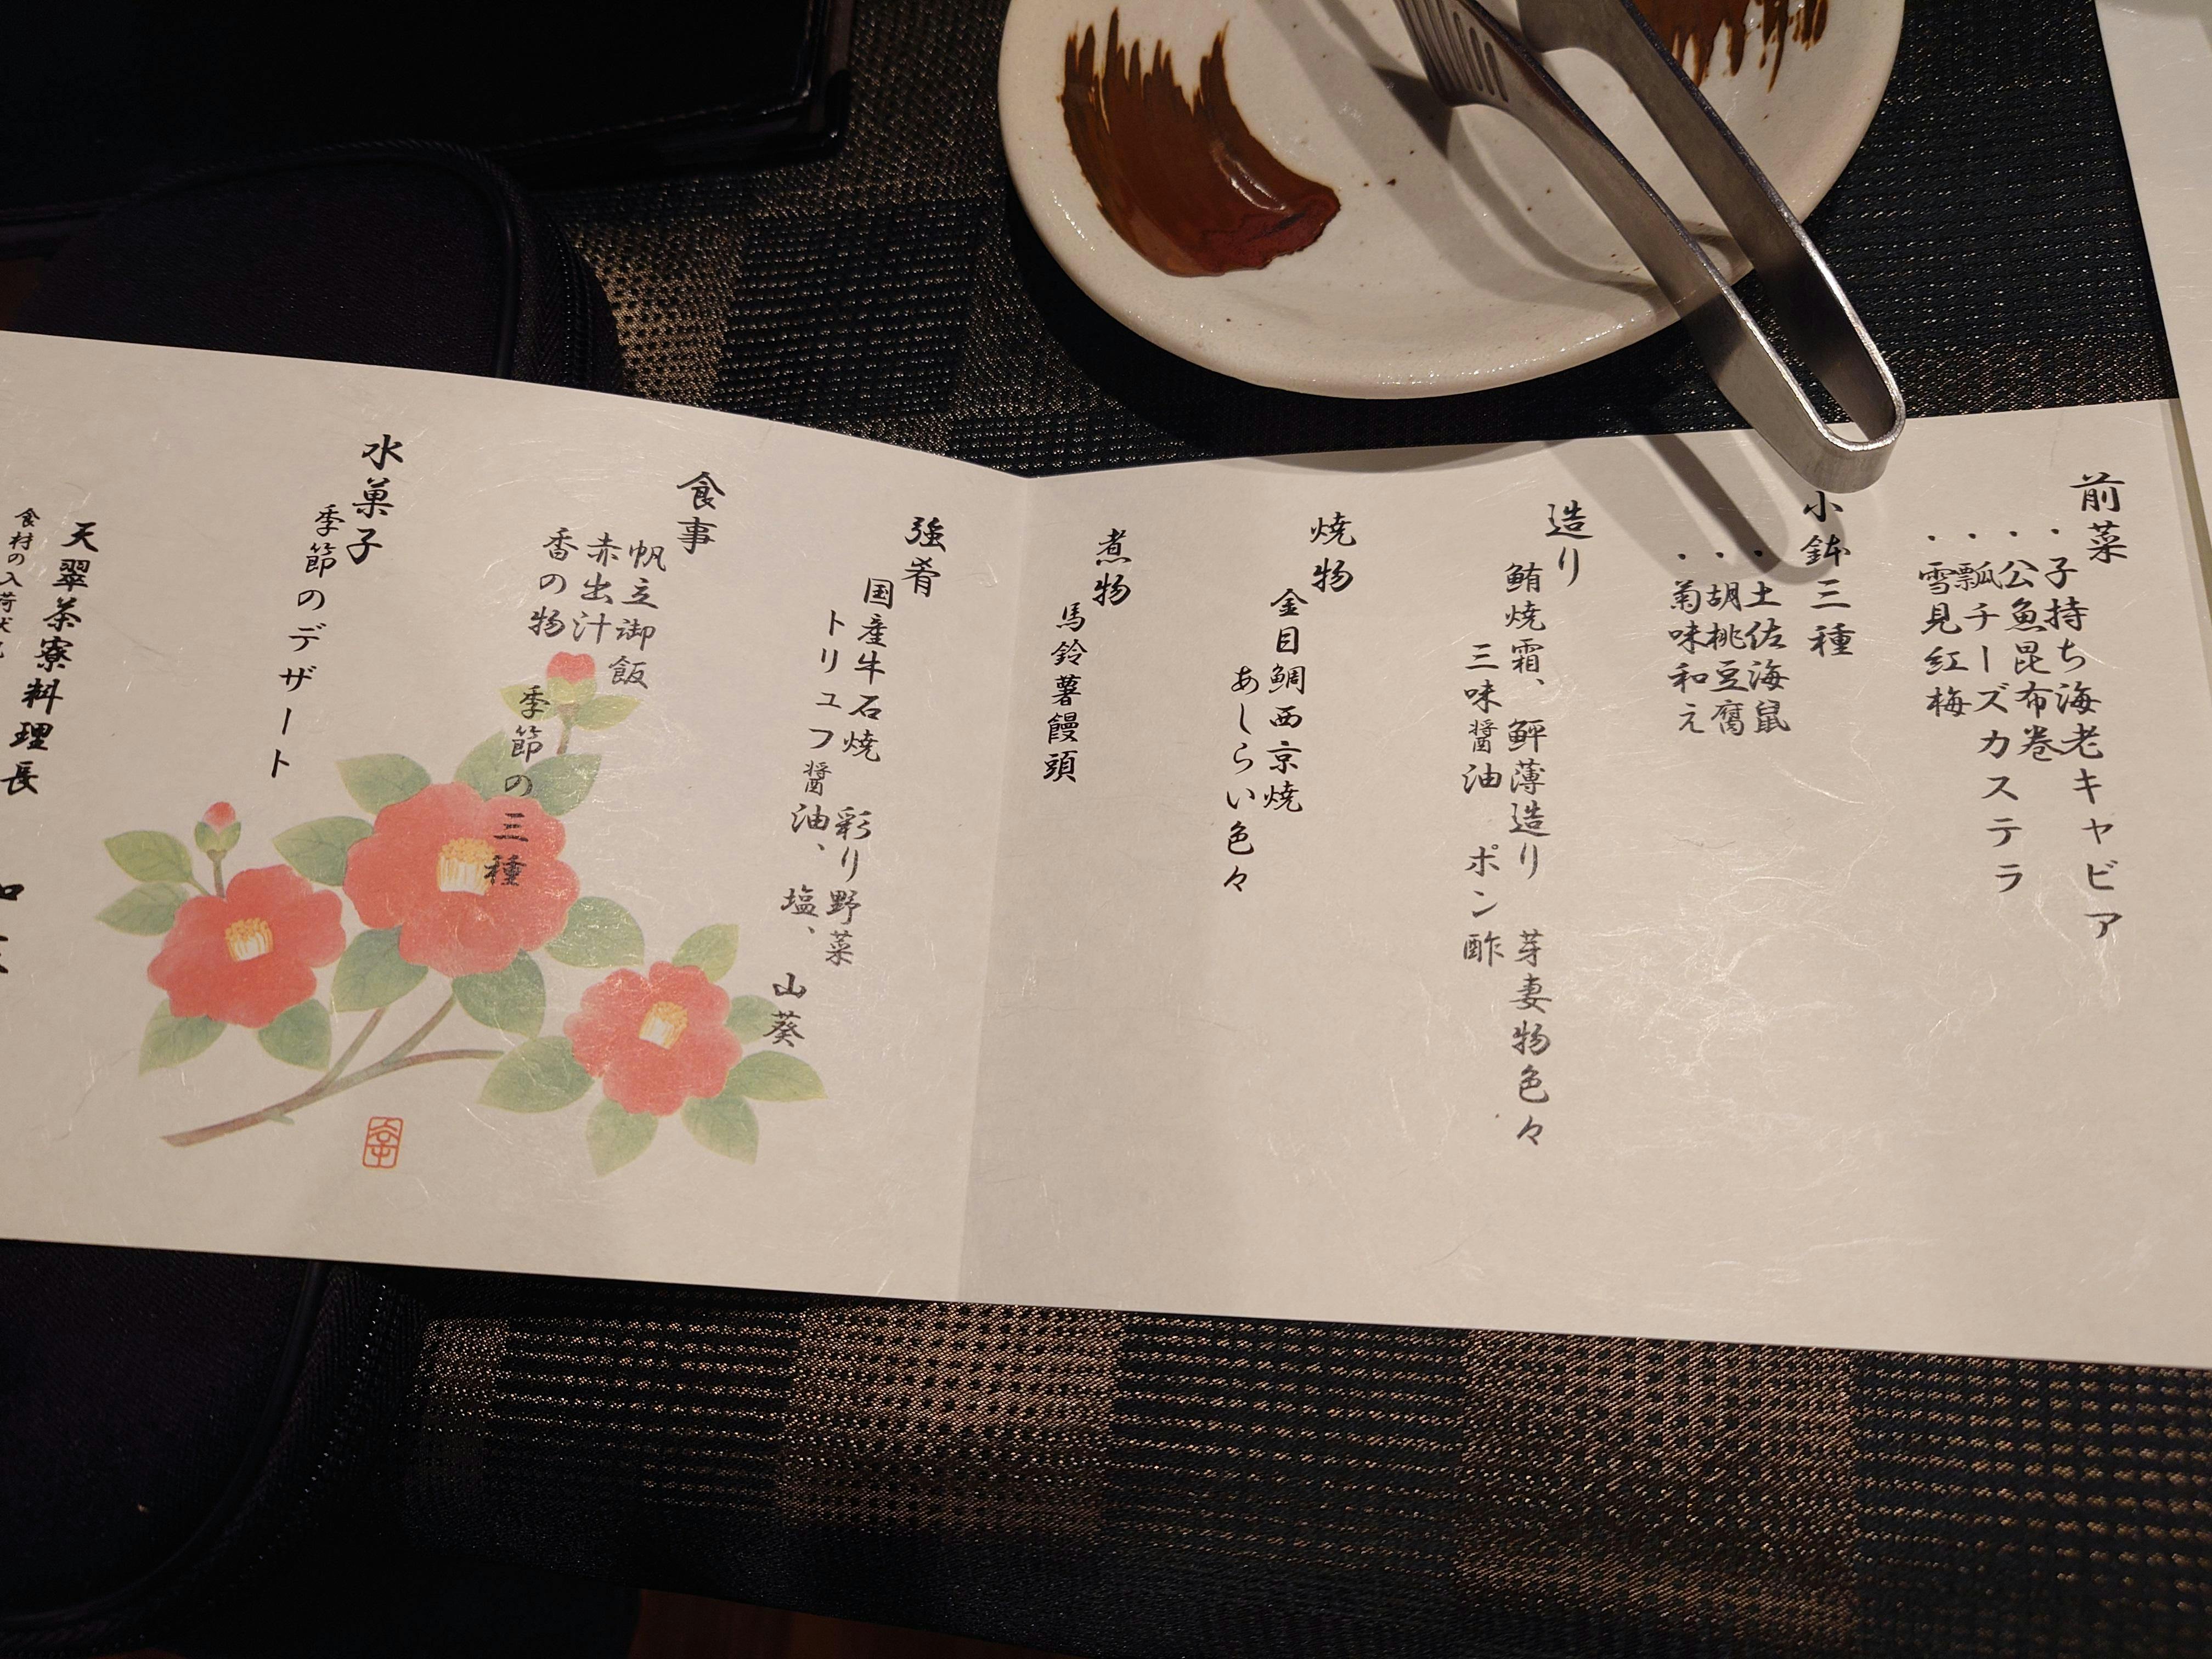 前菜
・子持ち海老キャビア
・公魚昆布巻
・瓢チーズカステラ
・雪見紅梅
小鉢三種
・土佐海鼠
・胡桃豆腐
・菊味和え
造り
鮪焼霜、鮃薄造り 芽妻物色々
三味醤油 ポン酢
焼物
金目鯛西京焼
あしらい色々
煮物
馬鈴薯饅頭
強肴
国産牛石焼 彩り野菜
トリュフ醤油、塩、山葵
食事
帆立御飯
赤出汁
香の物 季節の三種
水菓子
季節のデザート
天翠茶寮料理長
食材の入荷状